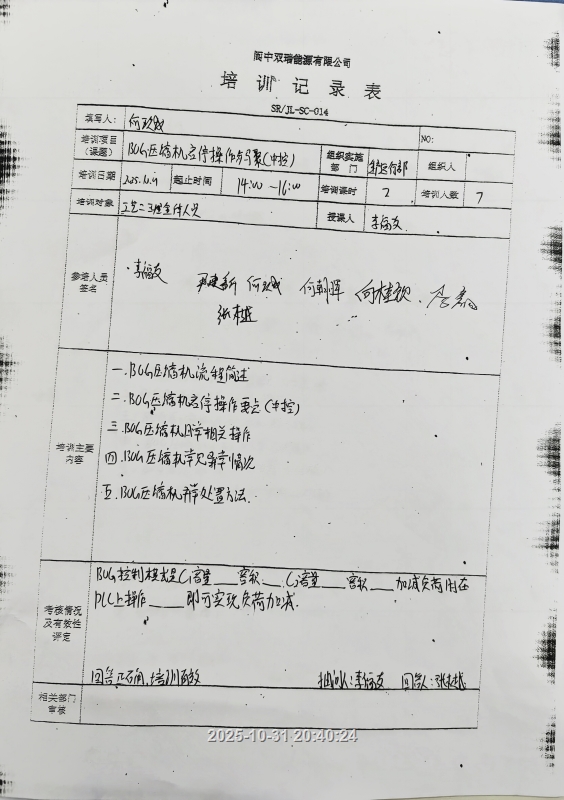 阆中双瑞能源有限公司
培训记录表
SR/JL-SC-014
填写人： NO:
培训项目（课题） BOG压缩机启停操作与步聚(中控) 组织实施部门 生产运行部 组织人
培训日期 2025.10.19 起止时间 14:00 —16:00 培训课时 2 培训人数 7
培训对象 工艺二班全体人员 授课人 李福友
参培人员签名 李福友 何朝晖
培训主要内容
一.BOG压缩机流程简述
二.BOG压缩机启停操作要点(中控)
三.BOG压缩机日常相关操作
四.BOG压缩机常见异常情况
五.BOG压缩机异常处置方法.
考核情况及有效性评定
BOG控制模式是 ___ ___ ___ ___ 加减负荷用在
PLC上操作 ___ 即可实现负荷加减.
回答正确,培训有效 提问人:李福友 回答人:张桂彬
相关部门审核
2025-10-31 20:40:24